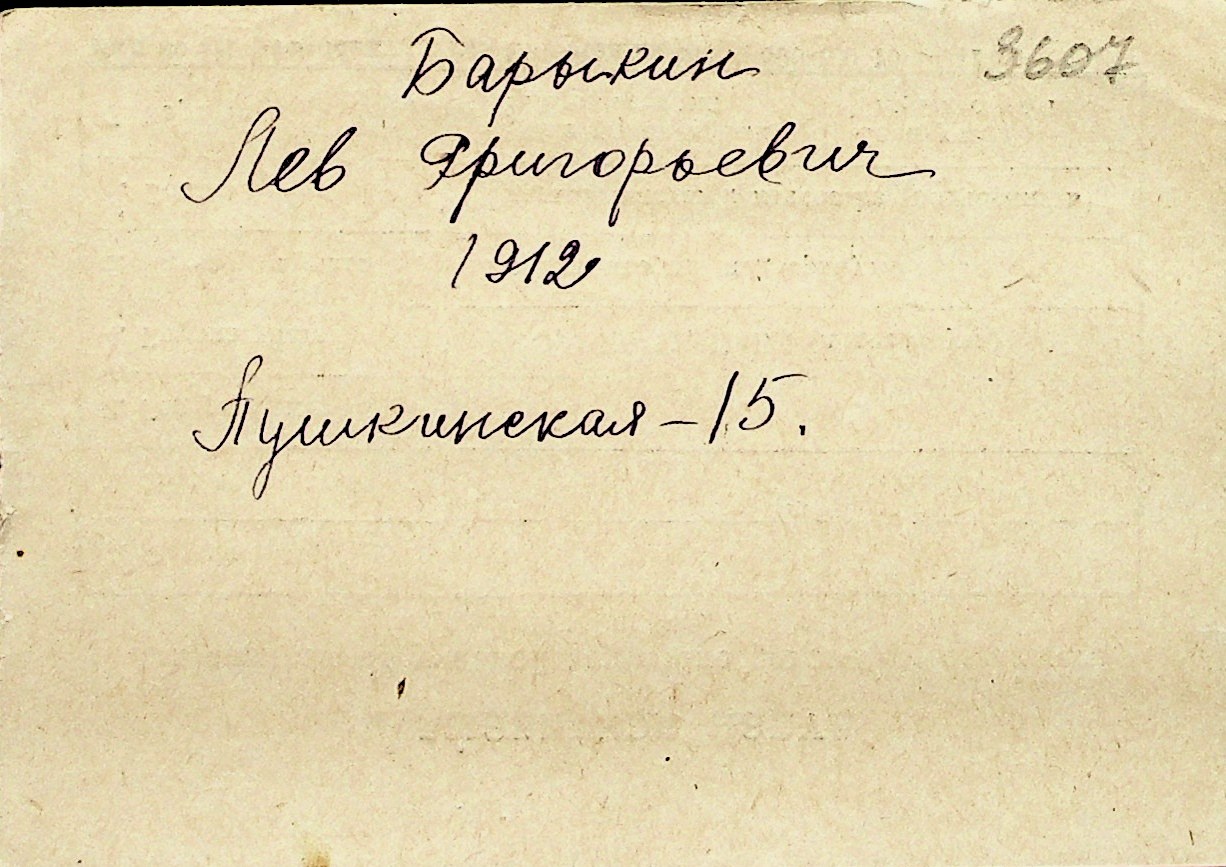 Барыкин 3607
Лев Григорьевич
1912
Пушкинская - 15.